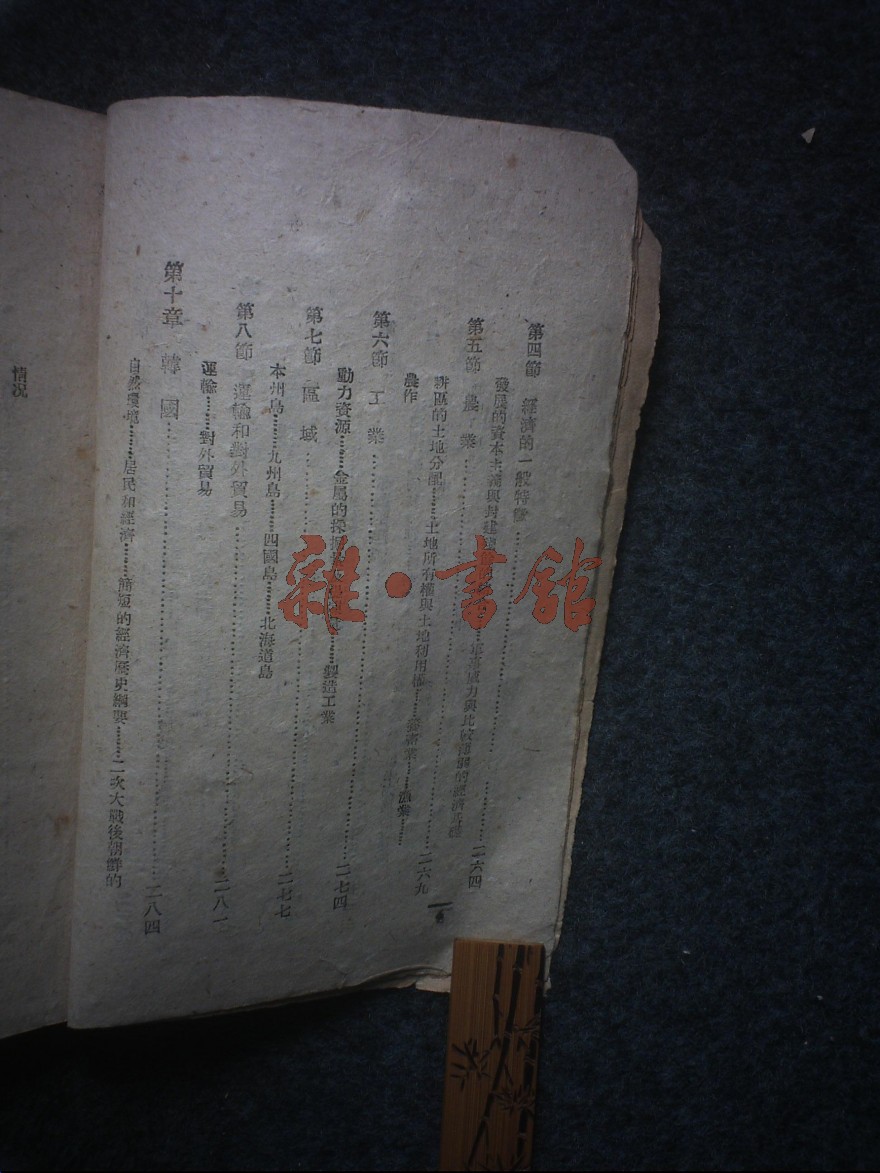 第四節 經濟的一般特徵……二六四
發展的資本主義與封建
力與比較
的經濟
第五節 農業……二六九
耕區的土地分配……土地所有權與土地利用權……畜業……漁業……
農作
第六節 工業……二七四
動力資源……金屬的採掘……製造工業
第七節 區域……二七七
本州島……九州島……四國島……北海道島
第八節 運輸和對外貿易……二八一
運輸……對外貿易
第十章 韓國……二八四
自然環境……居民和經濟……簡短的經濟歷史綱要……二次大戰後朝鮮的
情況
雜·書館